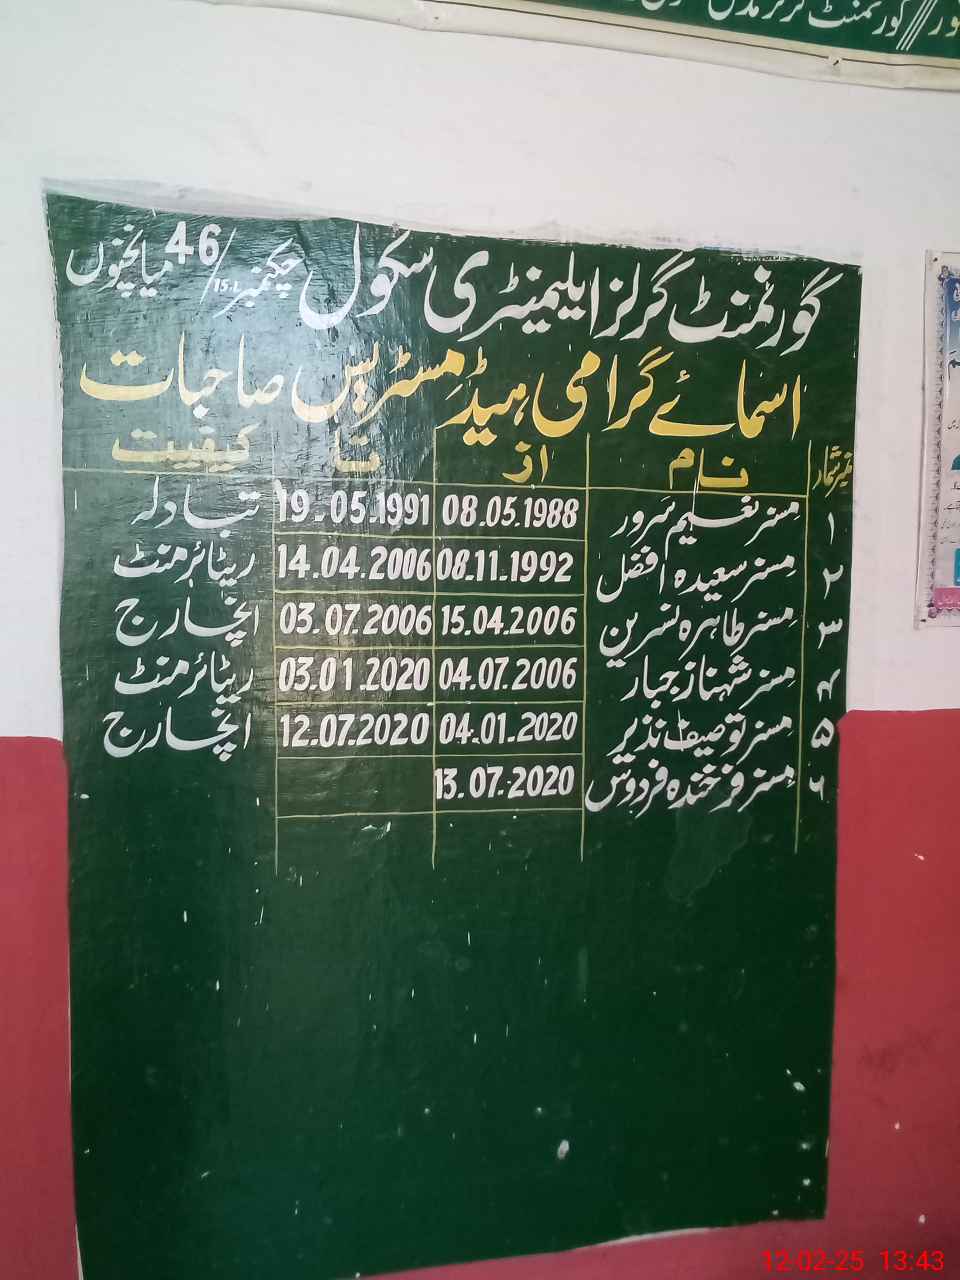 گورنمنٹ گرلز مڈل
گورنمنٹ گرلز ایلیمینٹری سکول چکنمبر 46/15.L میانچنوں
اسمائے گرامی ہیڈ مسٹریس صاحبات
نمبر شمار نام از تا کیفیت
۱ مسز نعیم سرور 08.05.1988 19.05.1991 تبادلہ
۲ مسز سعیدہ افضل 08.11.1992 14.04.2006 ریٹائرمنٹ
۳ مسز طاہرہ نسرین 15.04.2006 03.07.2006 انچارج
۴ مسز شہناز جبار 04.07.2006 03.01.2020 ریٹائرمنٹ
۵ مسز توصیف نذیر 04.01.2020 12.07.2020 انچارج
۶ مسز فرخندہ فردوس 13.07.2020
12-02-25 13:43